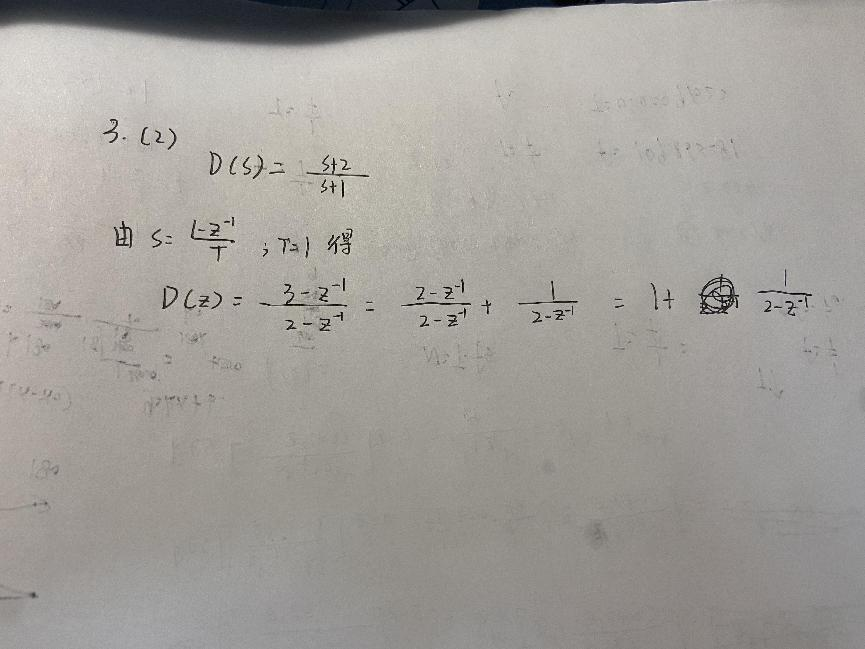 3. (2)
D(s) = \frac{s+2}{s+1}
由 s = \frac{1-z^{-1}}{T} , T=1 得
D(z) = \frac{3-z^{-1}}{2-z^{-1}} = \frac{2-z^{-1}}{2-z^{-1}} + \frac{1}{2-z^{-1}} = 1+ \frac{1}{2-z^{-1}}